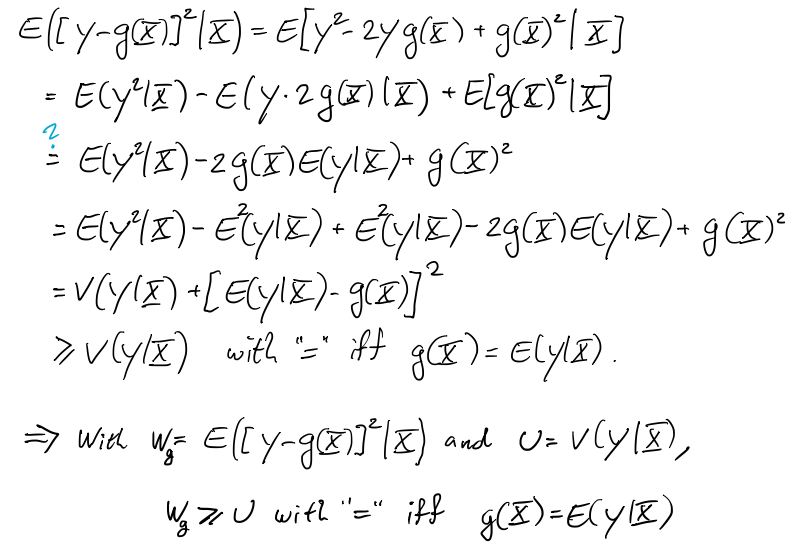 E([Y-g(X)]²|X) = E[Y²-2Yg(X)+g(X)²|X]
= E(Y²|X) - E(Y·2g(X)|X) + E[g(X)²|X]
?
= E(Y²|X)-2g(X)E(Y|X)+ g(X)²
= E(Y²|X) - E²(Y|X) + E²(Y|X) - 2g(X)E(Y|X)+ g(X)²
= V(Y|X) + [E(Y|X)- g(X)]²
≥ V(Y|X) with "=" iff g(X) = E(Y|X).
⇒ With W_g = E([Y-g(X)]²|X) and U = V(Y|X),
W_g ≥ U with "=" iff g(X)=E(Y|X)